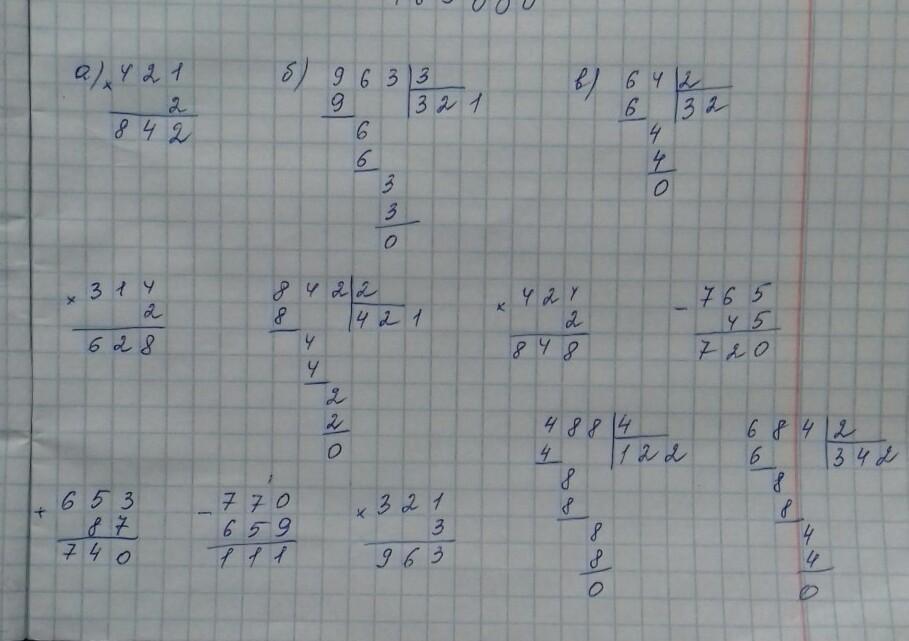 а) × 421
2
842
б) 963 | 3
9 321
6
6
3
3
0
в) 64 | 2
6 32
4
4
0
× 314
2
628
842 | 2
8 421
4
4
2
2
0
× 424
2
848
- 765
45
720
+ 653
87
740
- 770
659
111
× 321
3
963
488 | 4
4 122
8
8
8
8
0
684 | 2
6 342
8
8
4
4
0